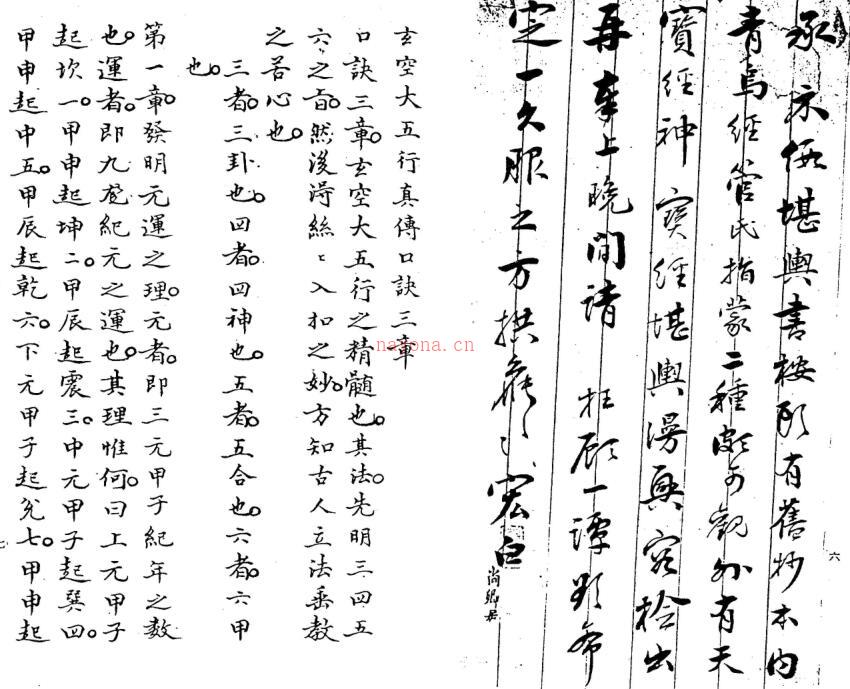 承示假堪輿書按所有舊抄本内
青烏經管氏指蒙二種頗可觀外有天
寶經神寶經堪輿漫興容檢出
再奉上晚間請 枉顧一譚並希
定一久服之方拱候〻宏白
六
玄空大五行真傳口訣三章
口訣三章。玄空大五行之精髓也。其法。先明三四五
六之旨。然後淂絲〻入扣之妙。方知古人立法垂教
之苦心也。
三者。三卦也。四者。四神也。五者。五合也。六者。六甲
也。
第一章。發明元運之理。元者。即三元甲子紀年之數
也。運者。即九宫紀元之運也。其理惟何。曰上元甲子
起坎一。甲申起坤二。甲辰起震三。中元甲子起巽四。
甲申起中五。甲辰起乾六。下元甲子起兌七。甲申起
nayona.cn